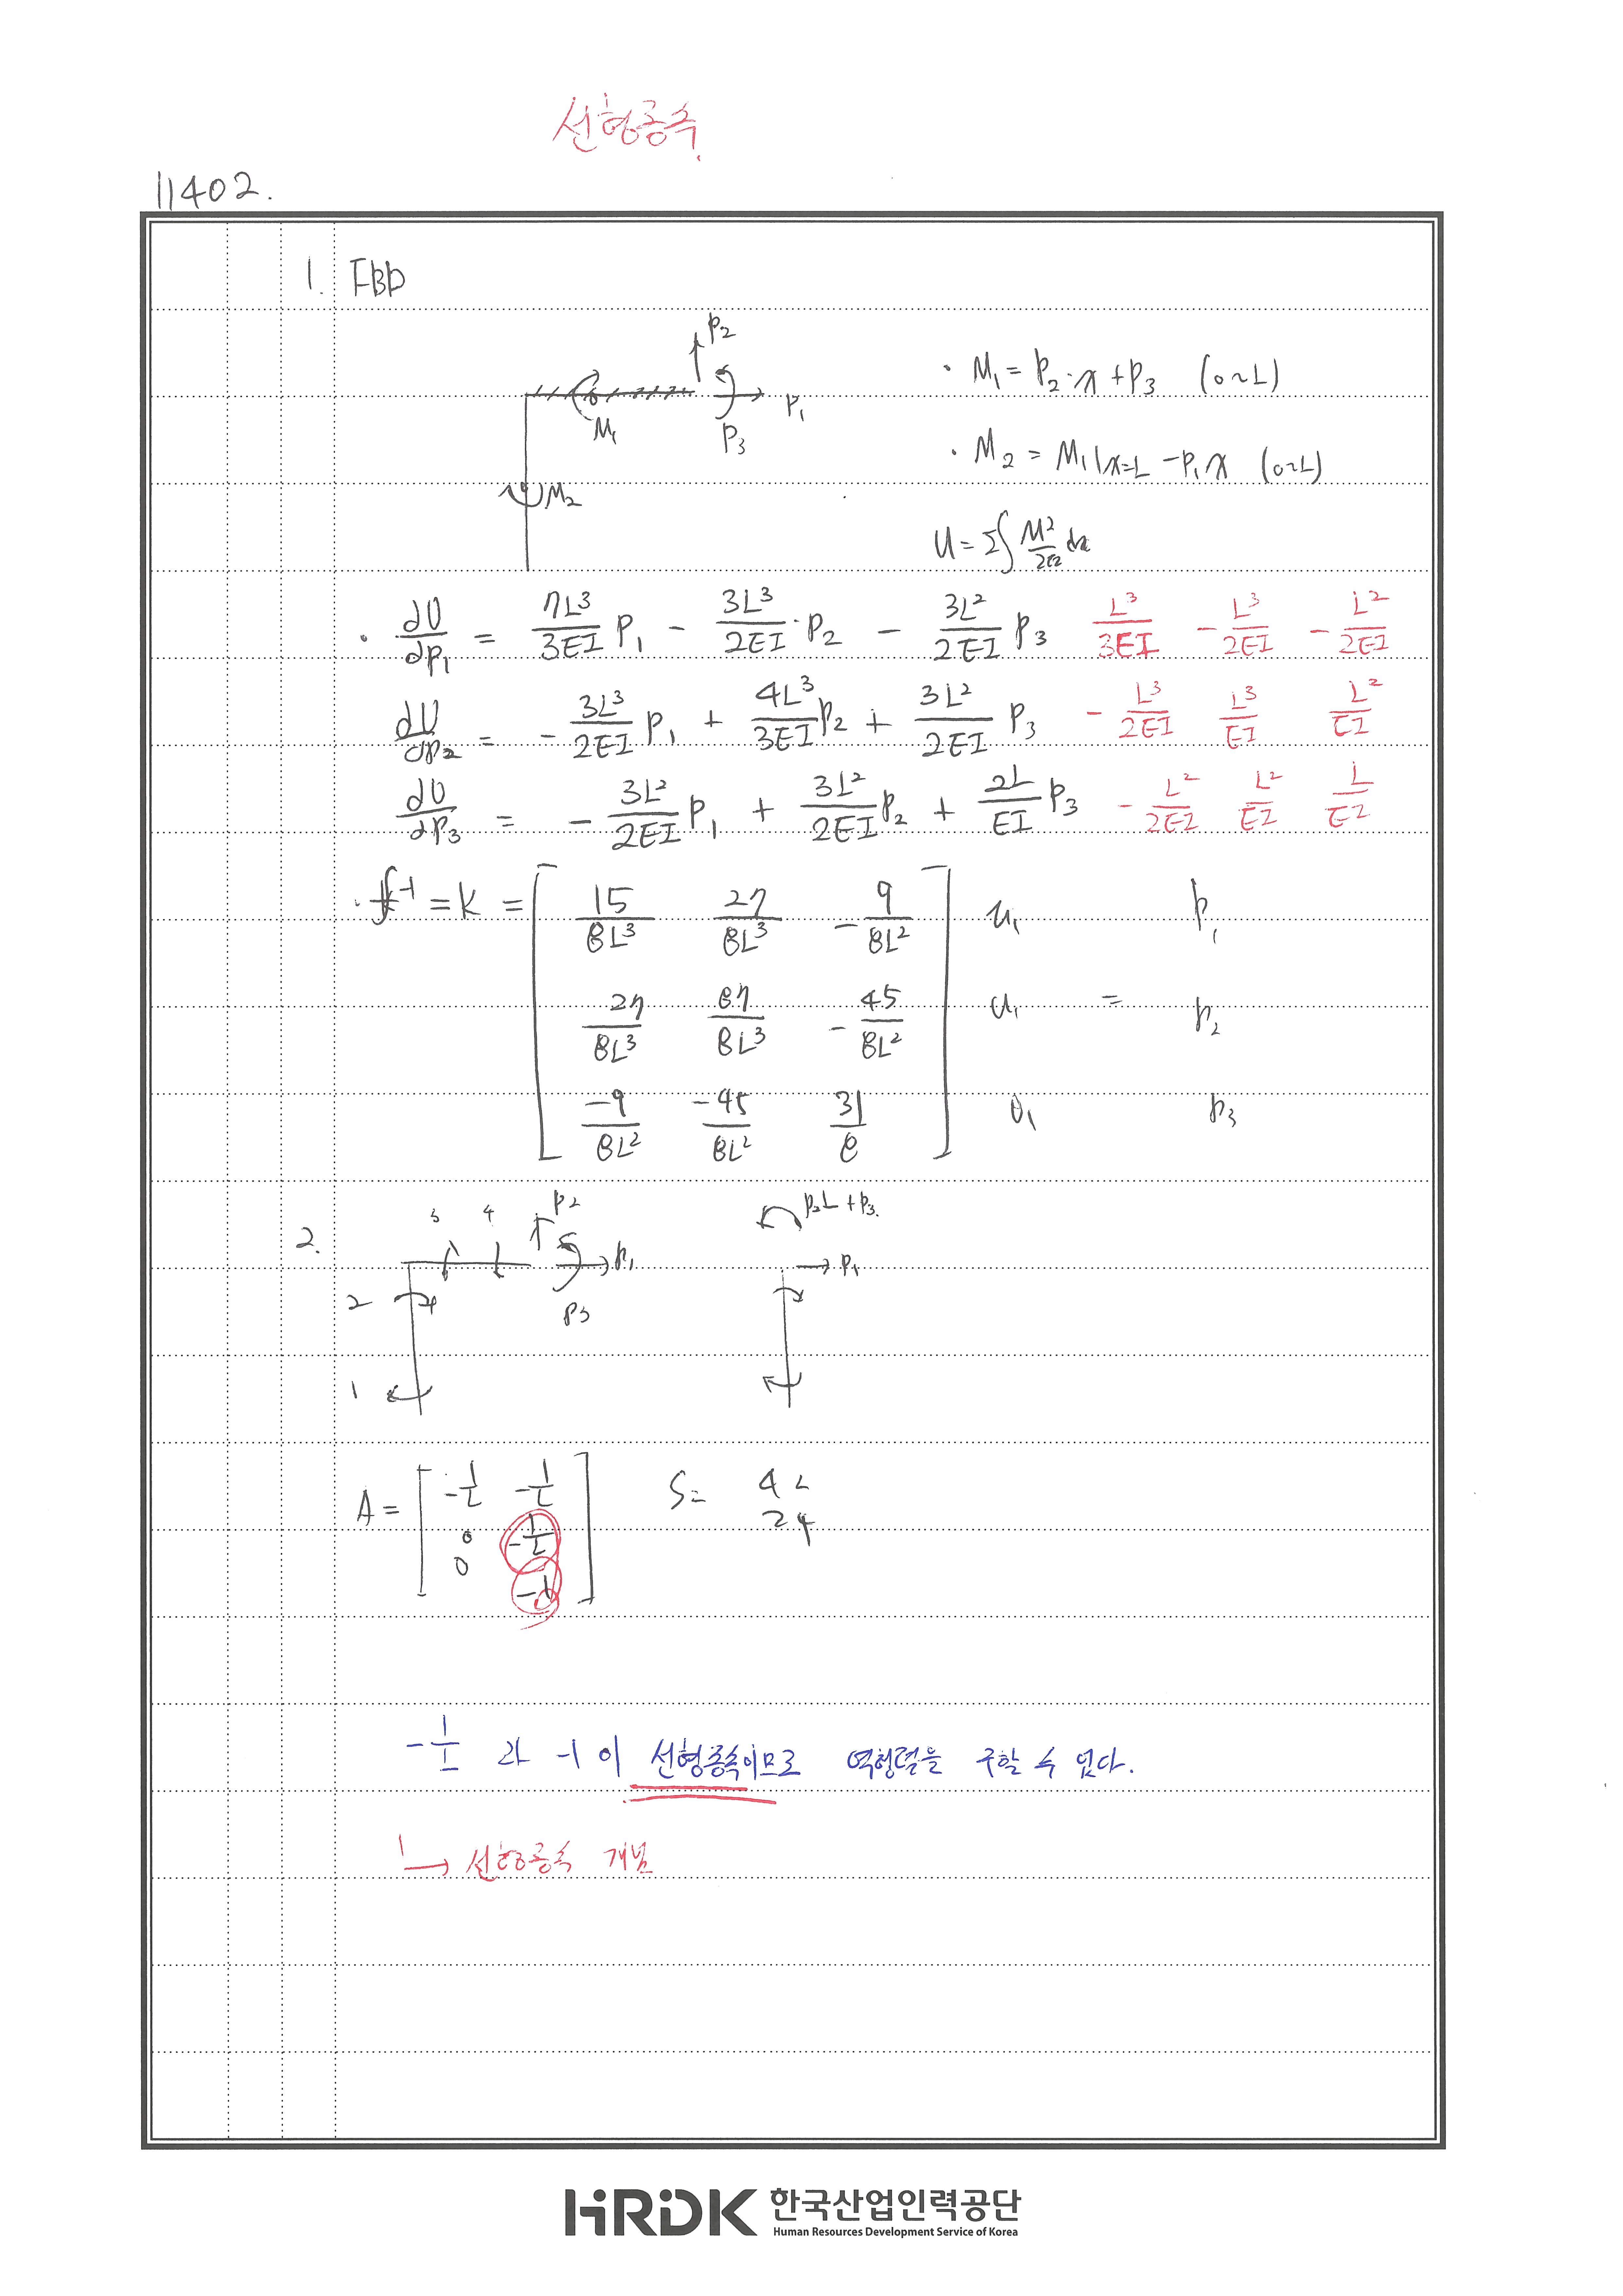 선형종속.
11402.
1. FBD
P2
P1
M1
P3
M2
· M1 = P2·x + P3 (0~L)
· M2 = M1|x=L - P1x (0~L)
U = Σ∫ M²/2EI dx
· ∂U/∂P1 = 7L³/3EI P1 - 3L³/2EI · P2 - 3L²/2EI P3 L³/3EI - L³/2EI - L²/2EI
∂U/∂P2 = - 3L³/2EI P1 + 4L³/3EI P2 + 3L²/2EI P3 - L³/2EI L³/EI L²/EI
∂U/∂P3 = - 3L²/2EI P1 + 3L²/2EI P2 + 2L/EI P3 - L²/2EI L²/EI L/EI
· f⁻¹ = K = [ 15/8L³ 27/8L³ - 9/8L² ] u1 P1
27/8L³ 87/8L³ - 45/8L² u1 = P2
-9/8L² -45/8L² 31/8 θ1 P3
2.
3 4 P2 P1 P3
2
1
P2L + P3.
P1
A = [ -1/L -1/L
0 -1/L
0 -1 ]
S = 4 2
2 4
-1/L 과 -1 이 선형종속이므로 역행렬을 구할 수 없다.
↳ 선형종속 개념
HRDK 한국산업인력공단
Human Resources Development Service of Korea